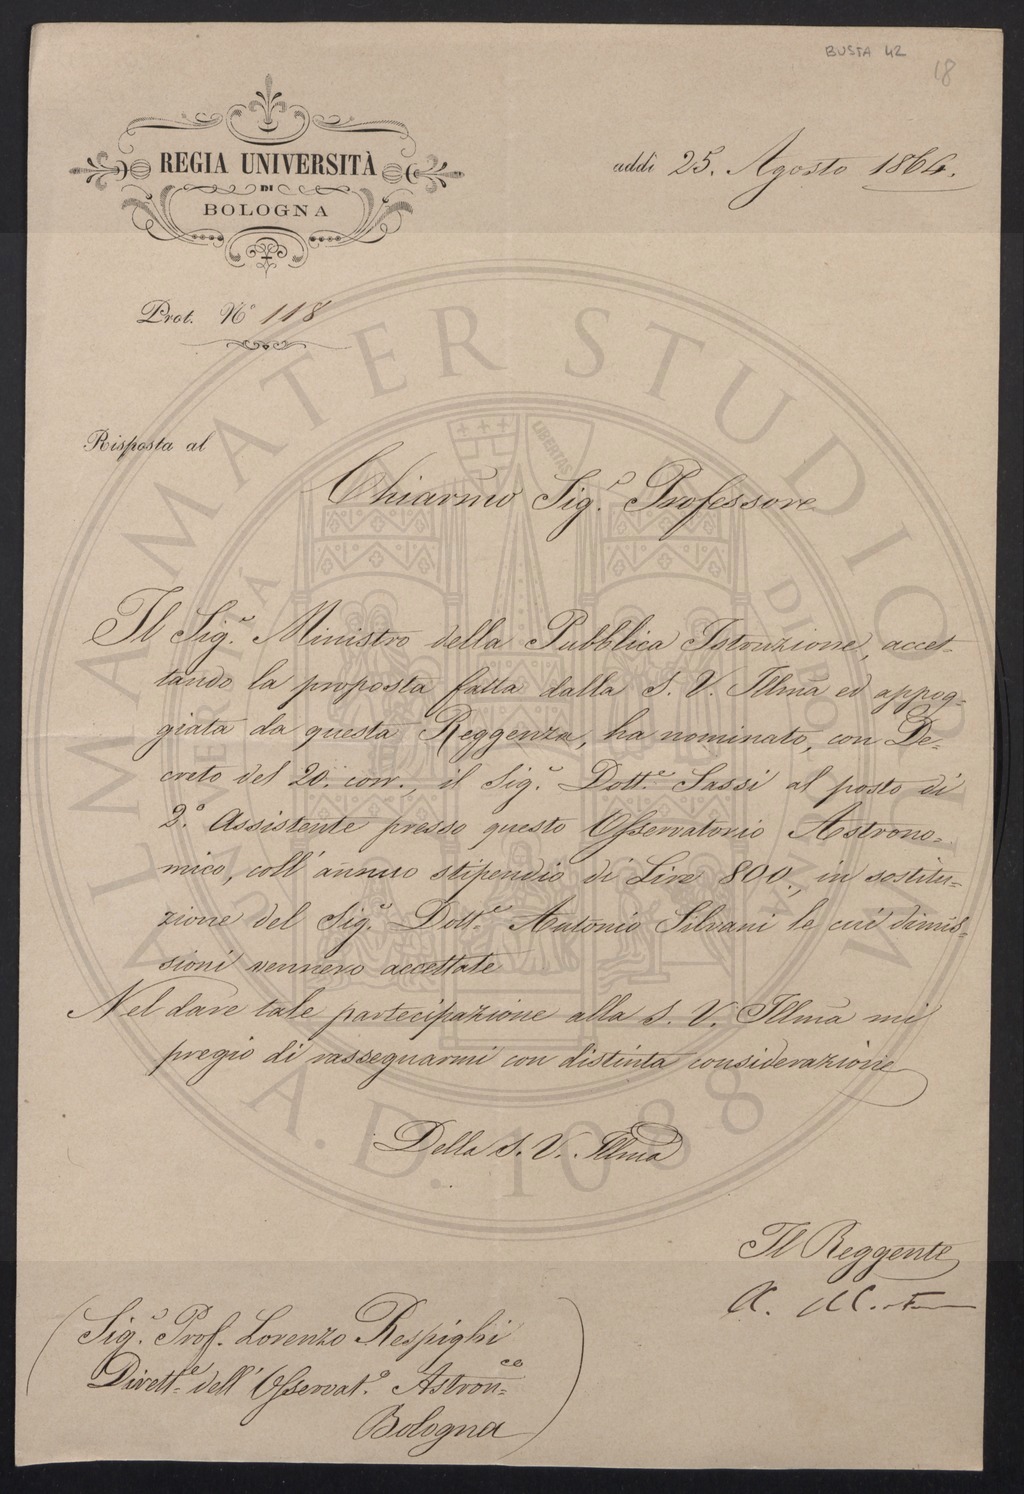 BUSTA 42
18
REGIA UNIVERSITÀ
DI
BOLOGNA
addì 25. Agosto 1864.
Prot. N° 118
Risposta al
Chiarm̃o Sig.r Professore
Il Sig.r Ministro della Pubblica Istruzione, accet-
tando la proposta fatta dalla S. V. Illm̃a ed appog-
giata da questa Reggenza, ha nominato, con De-
creto del 20. corr., il Sig.r Dott.e Sassi al posto di
2.° Assistente presso questo Osservatorio Astrono-
mico, coll' annuo stipendio di Lire 800., in sostitu-
zione del Sig.r Dott.e Antonio Silvani le cui dimis-
sioni vennero accettate
Nel dare tale partecipazione alla S. V. Illm̃a mi
pregio di rassegnarmi con distinta considerazione
Della S. V. Illm̃a
Il Reggente
Sig.r Prof. Lorenzo Respighi
Dirett.e dell' Osservat.o Astron.co
Bologna
ALMA MATER STUDIORUM
A.D. 1088
LIBERTAS